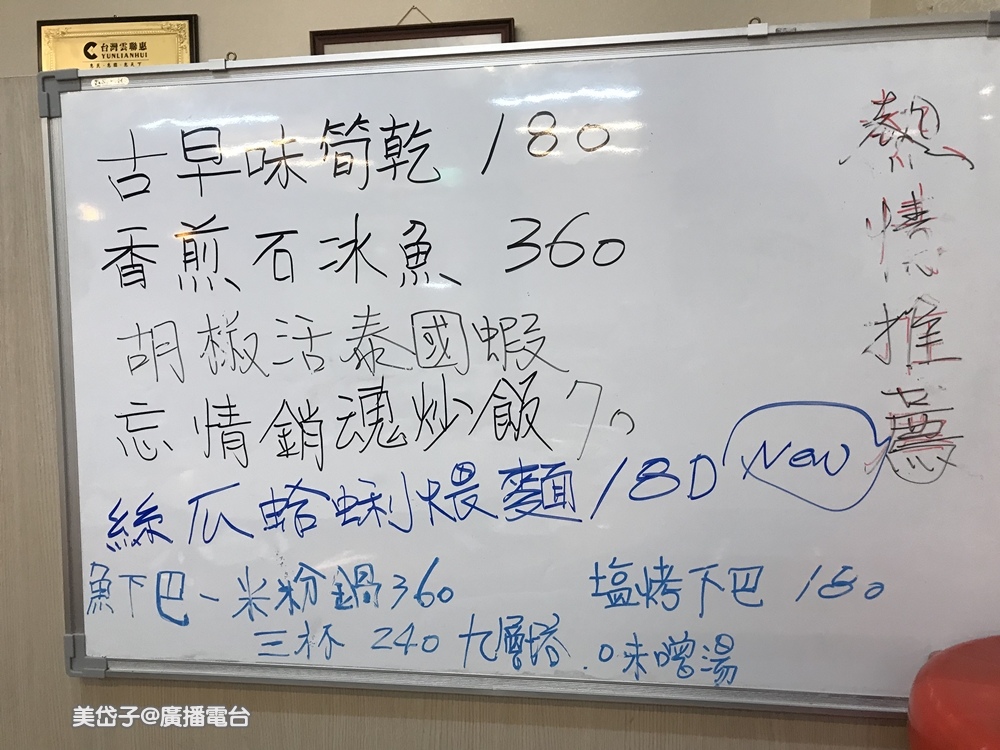 台灣雲聯惠
YUNLIANHUI
古早味筍乾 180
香煎石冰魚 360
胡椒活泰國蝦
忘情銷魂炒飯 70
絲瓜蛤蜊煨麵 180 New
魚下巴-米粉鍋 360 塩烤下巴 180
三杯 240 九層塔 味噌湯
熱情推薦
美岱子@廣播電台